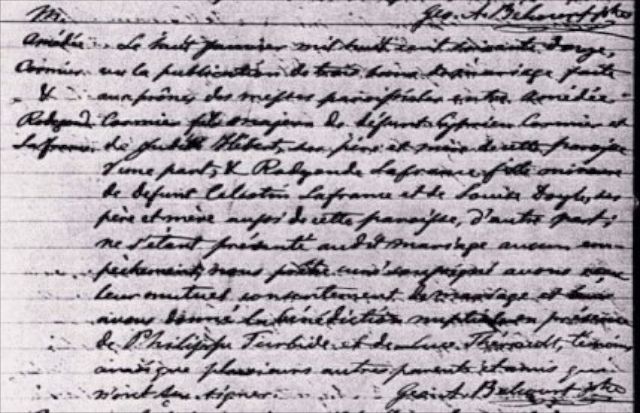 M. Geo. A. Belcourt ptre
Amédée Le huit janvier mil huit cent soixante douze,
Cormier vu la publication de trois bans de mariage faite
& aux prônes des messes paroissiales entre Amédée
Radegonde Cormier fils majeur de défunt Cyprien Cormier et
Lafrance de Judith Hébert, ses père et mère de cette paroisse
d'une part; & Radegonde Lafrance fille mineure
de defunt Célestin Lafrance et de Louise Doyle, ses
père et mère aussi de cette paroisse, d'autre part;
ne s'étant présenté au dit mariage aucun em-
pêchement, nous prêtre curé soussigné avons reçu
leur mutuel consentement de mariage et leur
avons donné la bénédiction nuptiale en présence
de Philippe Turbide et de Luce Theriault, témoins
ainsi que plusieurs autres parents et amis qui
n'ont su signer. Geo. A. Belcourt ptre